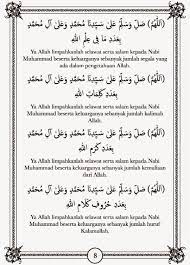 (اَللّٰهُمَّ) صَلِّ وَسَلِّمْ عَلَى سَيِّدِنَا مُحَمَّدٍ وَعَلَى آلِ مُحَمَّدٍ
بِعَدَدِ مَا فِى عِلْمِ اللهِ
Ya Allah limpahkanlah selawat serta salam kepada Nabi
Muhammad beserta keluarganya sebanyak jumlah segala yang
ada dalam pengetahuan Allah.
(اَللّٰهُمَّ) صَلِّ وَسَلِّمْ عَلَى سَيِّدِنَا مُحَمَّدٍ وَعَلَى آلِ مُحَمَّدٍ
بِعَدَدِ كَلِمَاتِ اللهِ
Ya Allah limpahkanlah selawat serta salam kepada Nabi
Muhammad beserta keluarganya sebanyak jumlah kalimah
Allah.
(اَللّٰهُمَّ) صَلِّ وَسَلِّمْ عَلَى سَيِّدِنَا مُحَمَّدٍ وَعَلَى آلِ مُحَمَّدٍ
بِعَدَدِ كَرَمِ اللهِ
Ya Allah limpahkanlah selawat serta salam kepada Nabi
Muhammad beserta keluarganya sebanyak jumlah kemuliaan
dari Allah.
(اَللّٰهُمَّ) صَلِّ وَسَلِّمْ عَلَى سَيِّدِنَا مُحَمَّدٍ وَعَلَى آلِ مُحَمَّدٍ
بِعَدَدِ حُرُوفِ كَلَامِ اللهِ
Ya Allah limpahkanlah selawat serta salam kepada Nabi
Muhammad beserta keluarganya sebanyak jumlah huruf
Kalamullah.
8